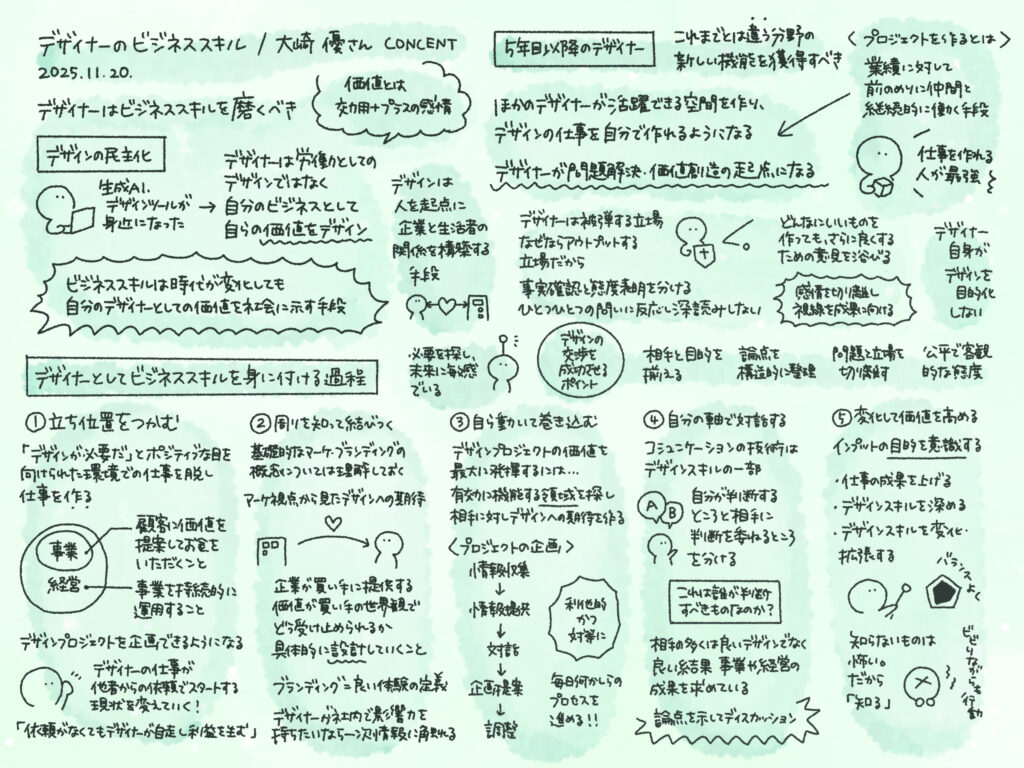 デザイナーのビジネススキル / 大崎 優さん CONCENT
2025.11.20.
デザイナーはビジネススキルを磨くべき
価値とは
効用+プラスの感情
デザインの民主化
生成AI、
デザインツールが
身近になった
→
デザイナーは労働力としての
デザインではなく
自分のビジネスとして
自らの価値をデザイン
デザインは
人を起点に
企業と生活者の
関係を構築する
手段
ビジネススキルは時代が変化しても
自分のデザイナーとしての価値を社会に示す手段
必要を探し、
未来に敏感
でいる
5年目以降のデザイナー
これまでとは違う分野の
新しい機能を獲得すべき
ほかのデザイナーが活躍できる空間を作り、
デザインの仕事を自分で作れるようになる
デザイナーが問題解決・価値創造の起点になる
〈プロジェクトを作るとは〉
業績に対して
前のめりに仲間と
継続的に働く手段
仕事を作れる
人が最強
デザイナーは被弾する立場
なぜならアウトプットする
立場だから
事実確認と態度表明を分ける
ひとつひとつの問いに反応し深読みしない
どんなにいいものを
作っても、さらに良くする
ための意見を浴びる
感情を切り離し
視線を成果に向ける
デザイナー
自身が
デザインを
目的化
しない
デザインの
交渉を
成功させる
ポイント
相手と目的を
揃える
論点を
構造的に整理
問題と立場を
切り離す
公平で客観
的な態度
デザイナーとしてビジネススキルを身に付ける過程
①立ち位置をつかむ
「デザインが必要だ」とポジティブな目を
向けられた環境での仕事を脱し
仕事を作る
事業
経営
顧客に価値を
提案してお金を
いただくこと
事業を持続的に
運用すること
デザインプロジェクトを企画できるようになる
デザイナーの仕事が
他者からの依頼でスタートする
現状を変えていく!
「依頼がなくてもデザイナーが自走し利益を生む」
②周りを知って結びつく
基礎的なマーケ・ブランディングの
概念については理解しておく
マーケ視点から見たデザインへの期待
企業が買い手に提供する
価値が買い手の世界観で
どう受け止められるか
具体的に設計していくこと
ブランディング=良い体験の定義
デザイナーが社内で影響力を
持ちたいなら一次情報に触れる
③自ら動いて巻き込む
デザインプロジェクトの価値を
最大に発揮するには…
有効に機能する領域を探し
相手に対しデザインへの期待を作る
〈プロジェクトの企画〉
情報収集
↓
情報提供
↓
対話
↓
企画提案
↓
調整
利他的
かつ
対等に
毎日何かしらの
プロセスを
進める!!
④自分の軸で対話する
コミュニケーションの技術は
デザインスキルの一部
A B
自分が判断する
ところと相手に
判断を委ねるところ
を分ける
これは誰が判断
すべきものなのか?
相手の多くは良いデザインでなく
良い結果 事業や経営の
成果を求めている
論点を示してディスカッション
⑤変化して価値を高める
インプットの目的を意識する
・仕事の成果を上げる
・デザインスキルを深める
・デザインスキルを変化・
拡張する
バランスよく
知らないものは
怖い。
だから
「知る」
ビビりながらも行動